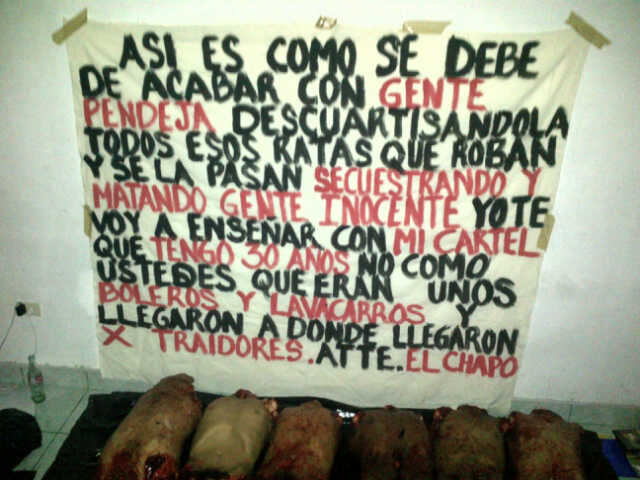 ASI ES COMO SE DEBE
DE ACABAR CON GENTE
PENDEJA DESCUARTISANDOLA
TODOS ESOS RATAS QUE ROBAN
Y SE LA PASAN SECUESTRANDO Y
MATANDO GENTE INOCENTE YO TE
VOY A ENSEÑAR CON MI CARTEL
QUE TENGO 30 AÑOS NO COMO
USTEDES QUE ERAN UNOS
BOLEROS Y LAVACARROS Y
LLEGARON A DONDE LLEGARON
X TRAIDORES. ATTE. EL CHAPO